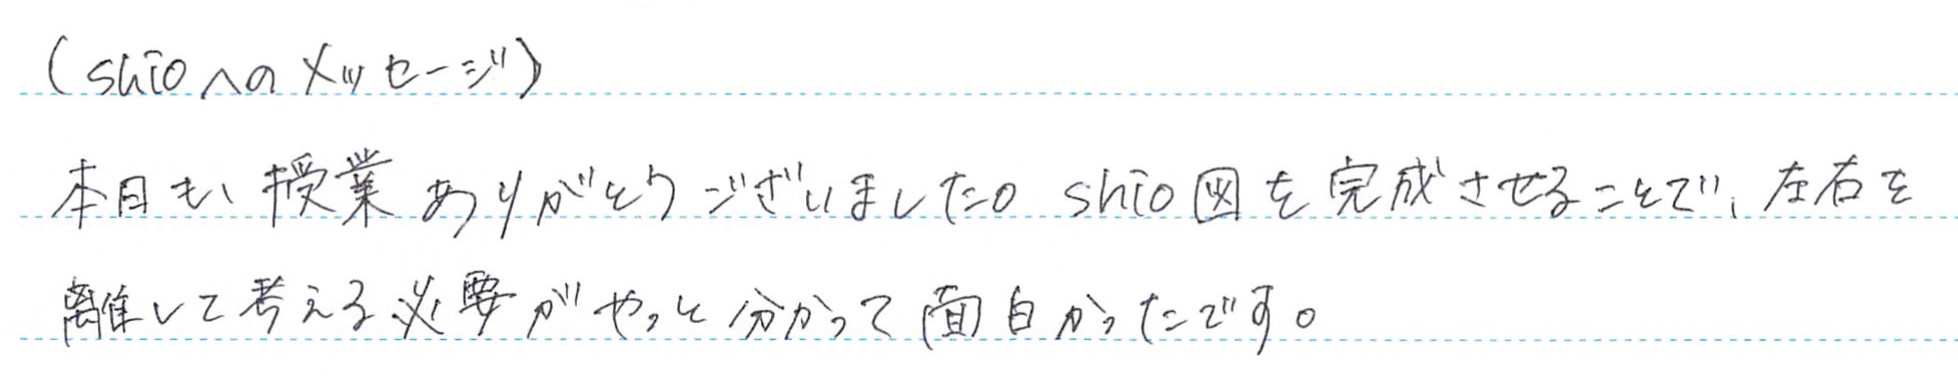 (shioへのメッセージ)
本日も、授業ありがとうございました。shio図を完成させることで、左右を
離して考える必要がやっと分かって面白かったです。